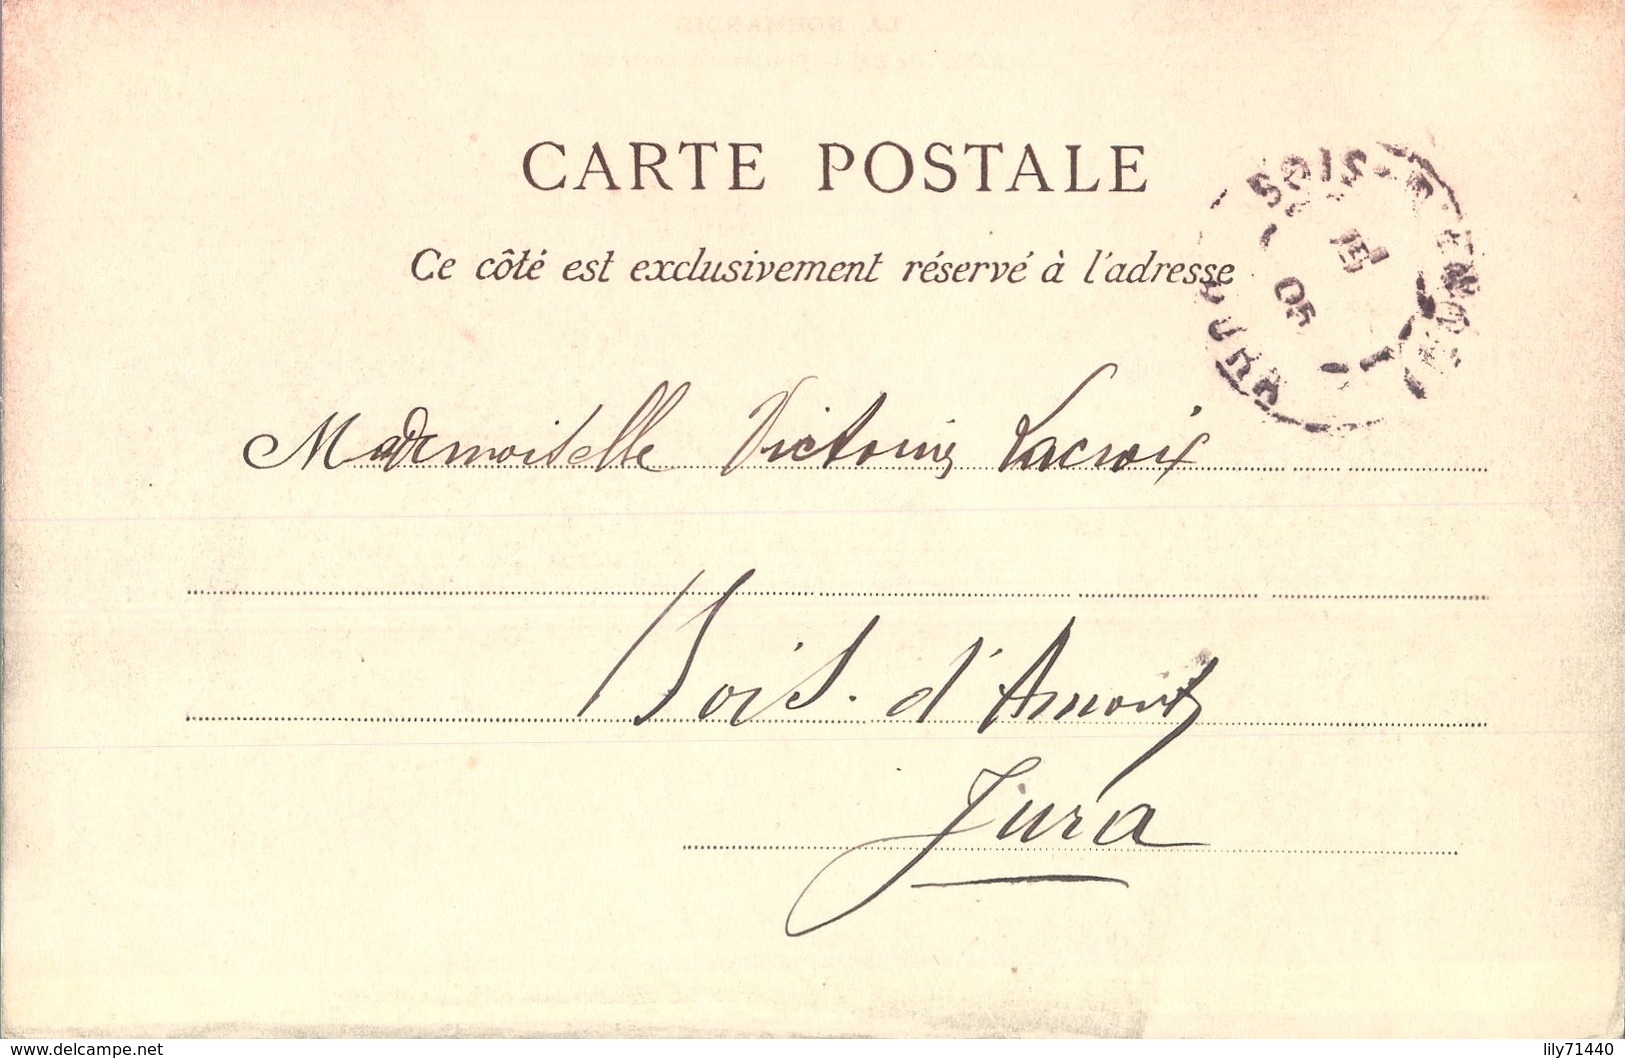 CARTE POSTALE
Ce côté est exclusivement réservé à l'adresse
BOIS-D'AMONT
15
05
JURA
Mademoiselle Victorine Lacroix
Bois. d'Amont
Jura
www.delcampe.net
lily71440